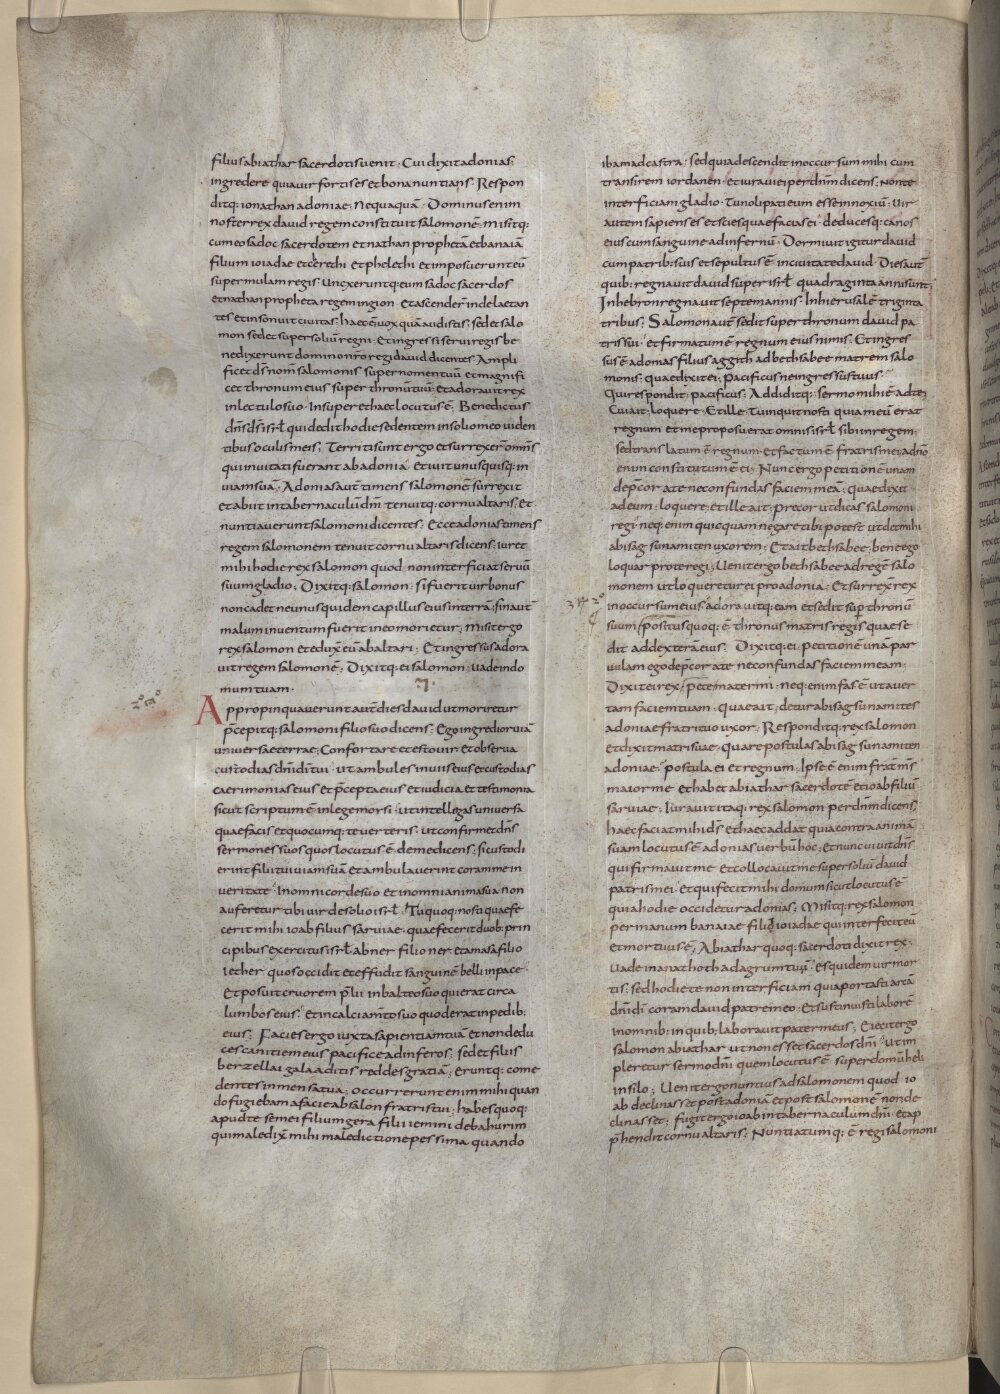 filius abiathar sacerdotis uenit. Cui dixit adonias
ingredere quia uir fortis es et bona nuntians. Respon
ditq; ionathan adoniae. Nequaquā. Dominus enim
noster rex dauid regem constituit salomonē. misitq;
cum eo sadoc sacerdotem et nathan prophetā et banaiā
filium ioiadae et cerethi et phelethi et imposuerunt eū
super mulam regis. Unxeruntq; eum sadoc sacerdos
et nathan propheta regem in gion et ascendert̄ inde laetan
tes et insonuit ciuitas. haec ē uox quā audistis. sed et salo
mon sedet super soliū regni. Et ingressi serui regis be
nedixerunt domino nr̄o regi dauid dicentes. Ampli
ficet ds̄ nom̄ salomonis super nomen tuū et magnifi
cet thronum eius super thronū tuū. Et adorauit rex
in lectulo suo. Insuper et haec locutus ē. Benedictus
dn̄s ds̄ isrł qui dedit hodie sedentem in solio meo uiden
tibus oculis meis. Territi sunt ergo et surrexer̄ omn̄s
qui inuitati fuerant ab adonia et iuit unusquisq; in
uiam suā. Adonias aut̄ timens salomonē surrexit
et abiit in tabernaculū dn̄i tenuitq; cornu altaris. Et
nuntiauerunt salomoni dicentes. Ecce adonias timens
regem salomonem tenuit cornu altaris dicens. iuret
mihi hodie rex salomon quod non interficiat seruū
suum gladio. Dixitq; salomon. si fuerit uir bonus
non cadet ne unus quidem capillus eius in terrā. sin aut̄
malum inuentum fuerit in eo morietur. Misit ergo
rex salomon et eduxi eū ab altari. Et ingressus adora
uit regem salomonē. Dixitq; ei salomon. uade in do
mum tuam.
Appropinquauerunt aut̄ dies dauid ut moriretur
p̄cepitq; salomoni filio suo dicens. Ego ingredior uiā
uniuersae terrae. Confortare et esto uir et obserua
custodias dn̄i dī tui. ut ambules in uiis eius et custodias
caerimonias eius et p̄cepta eius et iudicia et testimonia
sicut scriptum ē in lege morsi. ut intellegas uniuersa
quae facis et quocumq; te uerteris. ut confirmet dn̄s
sermones suos quos locutus ē de me dicens. si custodi
erint filii tui uiam suā et ambulauerint coram me in
ueritate. In omni corde suo et in omni anima sua non
auferetur tibi uir de solio isrł. Tu quoq; nosti quae fe
cerit mihi ioab filius saruiae. quae fecerit duob: prin
cipibus exercitus isrł abner filio ner et amasa filio
iether. quos occidit et effudit sanguinē belli in pace
Et posuit cruorem p̄lii in balteo suo qui erat circa
lumbos eius. Et in calciamto suo quod erat in pedib;
eius. Facies ergo iuxta sapientiam tuā et non dedu
ces canitiem eius pacifice ad inferos. sed et filiis
berzellai galaaditis reddes gratiā. Eruntq; come
dentes in mensa tua. occurrerunt enim mihi quan
do fugiebam a facie absalon fratris tui. habes quoq;
apud te semei filium gera filii iemini de bahurim
qui maledix̄ mihi maledictione pessima. quando
ibam ad castra. sed quia descendit in occursum mihi cum
transirem iordanen. et iuraui ei per dn̄m dicens. Non te
interficiam gladio. Tu noli pati eum esse innoxiū. Uir
autem sapiens es et scies quae facias ei. deducesq; canos
eius cum sanguine ad infernū. Dormiuit igitur dauid
cum patrib; suis et sepultus ē in ciuitate dauid. Dies aut̄
quib; regnauit dauid super isrł quadraginta anni sunt;
In hebron regnauit septem annis. In hierusalē triginta
tribus; Salomon aut̄ sedit super thronum dauid pa
tris sui. et firmatum ē regnum eius nimis. Et ingres
sus ē adonias filius aggith ad bethsabee matrem salo
monis. quae dixit ei; Pacificus ne ingressus tuus.
Qui respondit. pacificus. Addiditq; sermo mihi ē ad te;
Cui ait. loquere. Et ille. Tu inquit nosti quia meū erat
regnum et me proposuerat omnis isrł sibi in regem;
sed translatum ē regnum et factum ē fratris mei. a dn̄o
enim constitutum ē ei; Nunc ergo petitionē unam
dep̄cor a te ne confundas faciem meā. quae dixit
ad eum. loquere. et ille ait. precor ut dicas salomoni
regi. neq; enim quicquam negare tibi potest ut det mihi
abisag sunamiten uxorem; Et ait bethsabee. bene ego
loquar pro te regi; Uenit ergo bethsabee ad regē salo
monem ut loqueretur ei pro adonia; Et surrex̄ rex
in occursum eius adorauitq; eam et sedit sup̄ thronū
suum/positusquoq; ē thronus matris regis quae se
dit ad dexterā eius. Dixitq; ei petitionē unā par
uulam ego dep̄cor a te ne confundas faciem meam;
Dixit ei rex/ pete mater mi. neq; enim fas ē ut auer
tam faciem tuam. quae ait. detur abisag sunamites
adoniae fratri tuo uxor; Responditq; rex salomon
et dixit matri suae. Quare postulas abisag sunamiten
adoniae. postula ei et regnum. Ipse ē enim frat̄ m̄s
maior me et habet abiathar sacerdotē et ioab filiū
saruiae. Iurauit itaq; rex salomon per dn̄m dicens.
haec faciat mihi ds̄ et haec addat quia contra animā
suam locutus ē adonias uerbū hoc. et nunc uiuit dn̄s
qui firmauit me et collocauit me super soliū dauid
patris mei. et qui fecit mihi domum sicut locutus ē
quia hodie occidetur adonias; Misitq; rex salomon
per manum banaiae filii ioiadae qui interfecit eū
et mortuus ē; Abiathar quoq; sacerdoti dixit rex.
Uade in anathoth ad agrum tuū. Es quidem uir mor
tis. sed hodie te non interficiam quia portasti arcā
dn̄i dī coram dauid patre meo. Et sustinuisti laborē
in omnib; in quib; laborauit pater meus. Eiecit ergo
salomon abiathar ut non esset sacerdos dn̄i. ut im
pleretur sermo dn̄i quem locutus ē super domū heli
in silo; Uenit ergo nuntius ad salomonem quod io
ab declinasset post adoniā et post salomonē non de
clinasset; fugit ergo ioab in tabernaculum dn̄i et ap
p̄hendit cornu altaris; Nuntiatumq; ē regi salomoni